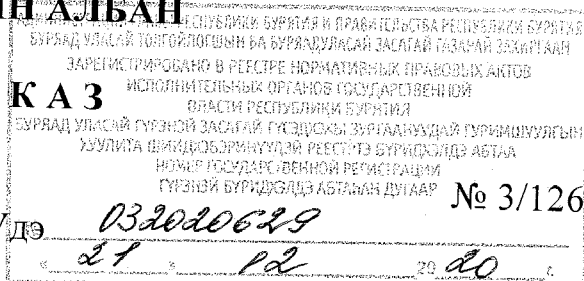 Н АЛБАН
РЕСПУБЛИКИ БУРЯТИЯ И ПРАВИТЕЛЬСТВА РЕСПУБЛИКИ БУРЯТИЯ
БУРЯАД УЛАСАЙ ТОЛГОЙЛОГШЫН БА БУРЯАД УЛАСАЙ ЗАСАГАЙ ГАЗАРАЙ ЗАХИРГААН
ЗАРЕГИСТРИРОВАНО В РЕЕСТРЕ НОРМАТИВНЫХ ПРАВОВЫХ АКТОВ
КАЗ
ИСПОЛНИТЕЛЬНЫХ ОРГАНОВ ГОСУДАРСТВЕННОЙ
ВЛАСТИ РЕСПУБЛИКИ БУРЯТИЯ
БУРЯАД УЛАСАЙ ГҮРЭНЭЙ ЗАСАГАЙ ГҮЙСЭДХЭХЫ ЗУРГААНУУДАЙ ГУРИМШУУЛГЫН
ХУУЛИТА РЕЕСТРТЭ БҮРИДХЭЛДЭ АБТАА
НОМЕР ГОСУДАРСТВЕННОЙ РЕГИСТРАЦИИ
ГҮРЭНЭЙ БҮРИДХЭЛДЭ АБТАҺАН ДУГААР
№ 3/126
ДЭ 032020629
« 21 » 12 2020 г.